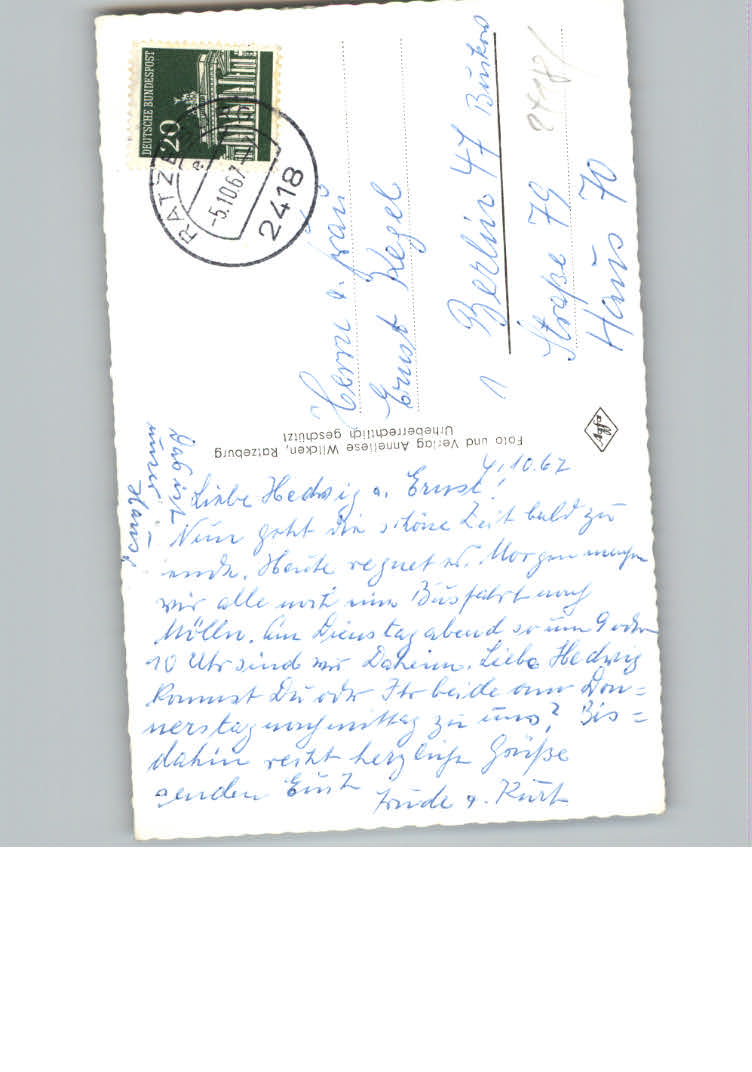 DEUTSCHE BUNDESPOST
20
RATZE
-5.10.67
2418
Herrn u. Frau
Ernst Kegel
1 Berlin 47 Buckow
Straße 79
Haus 70
Foto und Verlag Anneliese Witcken, Ratzeburg
Urheberrechtlich geschützt
4.10.67
Liebe Hedwig u. Ernst!
Nun geht die schöne Zeit bald zu
ende. Heute regnet es. Morgen machen
wir alle noch eine Busfahrt nach
Mölln. Am Dienstag abend so um 9 oder
10 Uhr sind wir Daheim. Liebe Hedwig
kommst Du oder Ihr beide am Don=
nerstag nachmittag zu uns? Bis=
dahin recht herzliche Grüße
senden Euch
Trude u. Kurt
Das ist
unser
Haus.